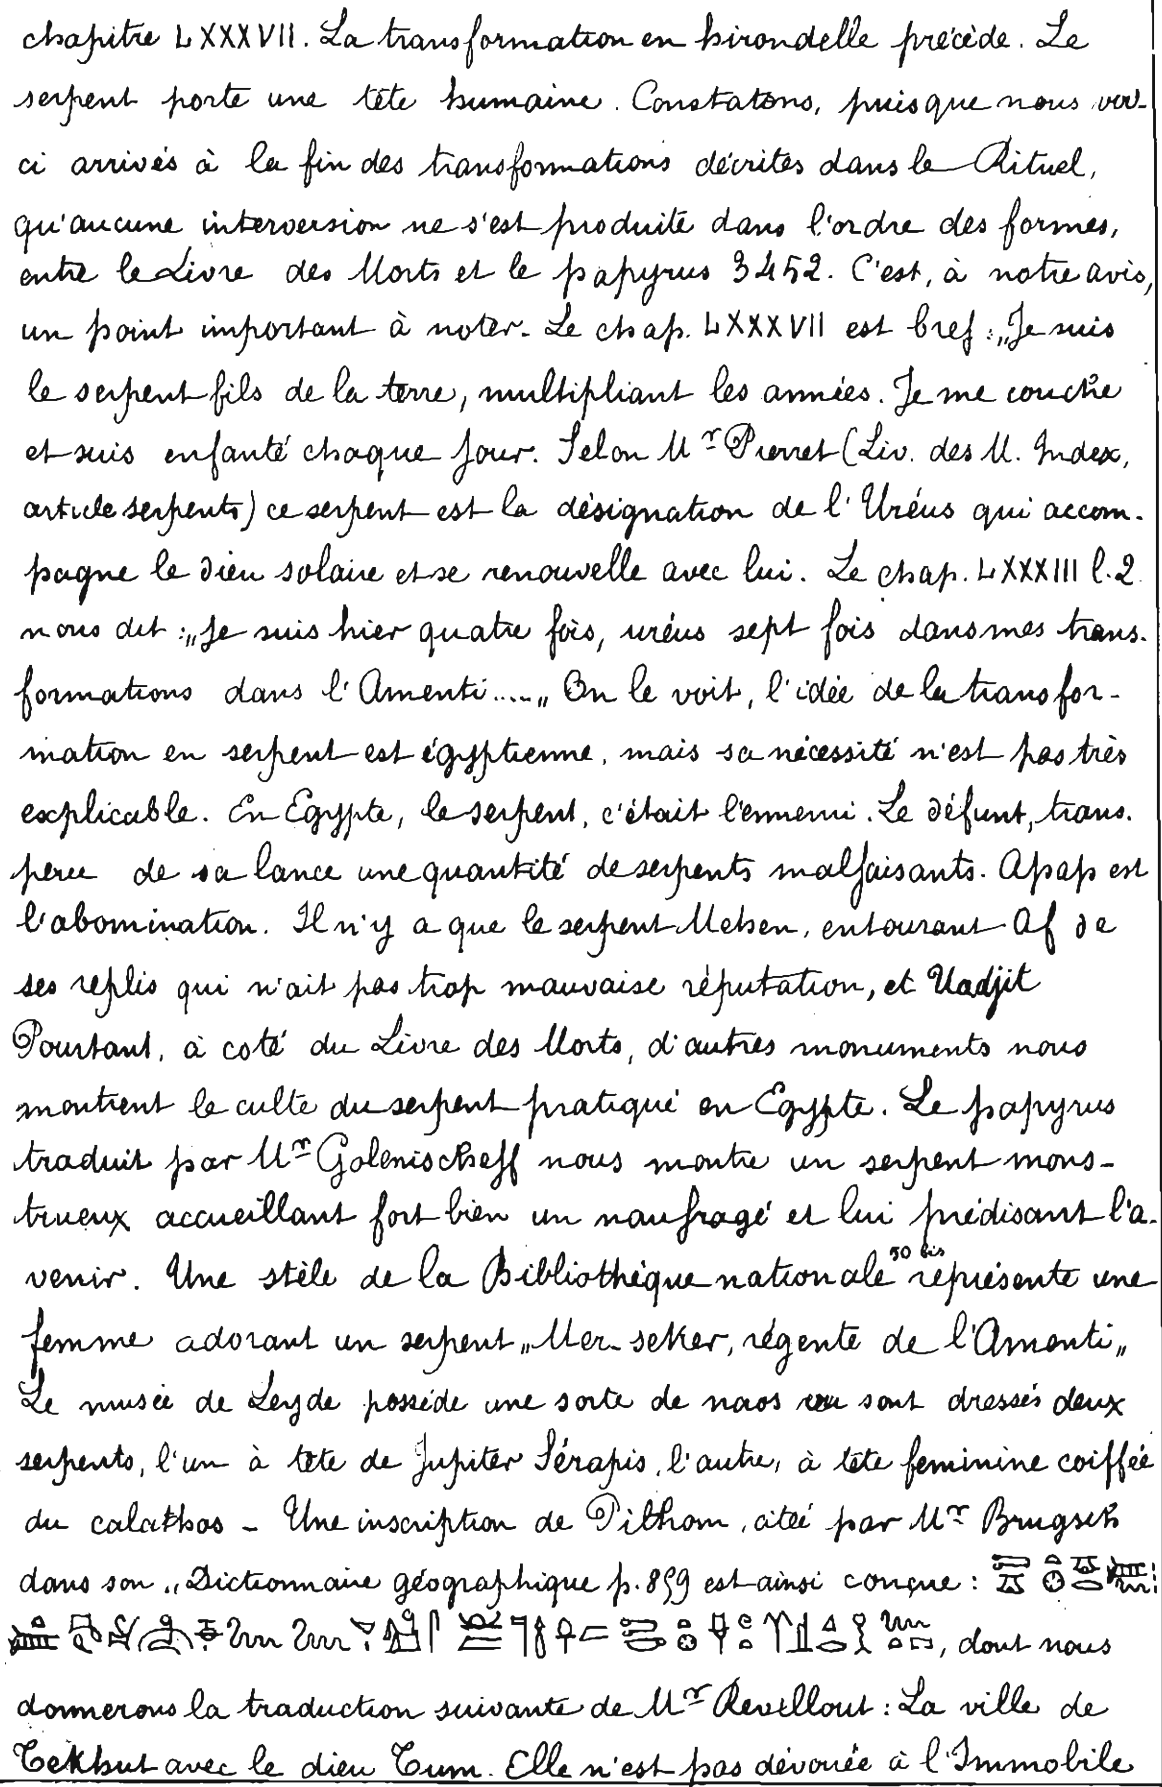 chapitre LXXXVII. La transformation en hirondelle précède. Le
serpent porte une tête humaine. Constatons, puisque nous voi-
ci arrivés à la fin des transformations décrites dans le Rituel,
qu'aucune interversion ne s'est produite dans l'ordre des formes,
entre le Livre des Morts et le papyrus 3452. C'est, à notre avis,
un point important à noter. Le chap. LXXXVII est bref : „Je suis
le serpent fils de la terre, multipliant les années. Je me couche
et suis enfanté chaque jour. Selon Mr Pierret (Liv. des M. Index,
article serpents) ce serpent est la désignation de l'Uréus qui accom-
pagne le dieu solaire et se renouvelle avec lui. Le chap. LXXXIII l. 2
nous dit : „Je suis hier quatre fois, uréus sept fois dans mes trans-
formations dans l'Amenti....„ On le voit, l'idée de la transfor-
mation en serpent est égyptienne, mais sa nécessité n'est pas très
explicable. En Egypte, le serpent, c'était l'ennemi. Le défunt, trans-
perce de sa lance une quantité de serpents malfaisants. Apap est
l'abomination. Il n'y a que le serpent Mehen, entourant Af de
ses replis qui n'ait pas trop mauvaise réputation, et Uadjit
Pourtant, à coté du Livre des Morts, d'autres monuments nous
montrent le culte du serpent pratiqué en Egypte. Le papyrus
traduit par Mr Golenischeff nous montre un serpent mons-
trueux accueillant fort bien un naufragé et lui prédisant l'a-
venir. Une stèle de la Bibliothèque nationale 50 bis représente une
femme adorant un serpent „Mer-seker, régente de l'Amenti„
Le musée de Leyde possède une sorte de naos où sont dressés deux
serpents, l'un à tête de Jupiter Sérapis, l'autre, à tête feminine coiffée
du calathos - Une inscription de Pithom, citée par Mr Brugsch
dans son „Dictionnaire géographique p. 859 est ainsi conçue :
, dont nous
donnerons la traduction suivante de Mr Revillout : La ville de
Tekhut avec le dieu Tum. Elle n'est pas dévouée à l'Immobile